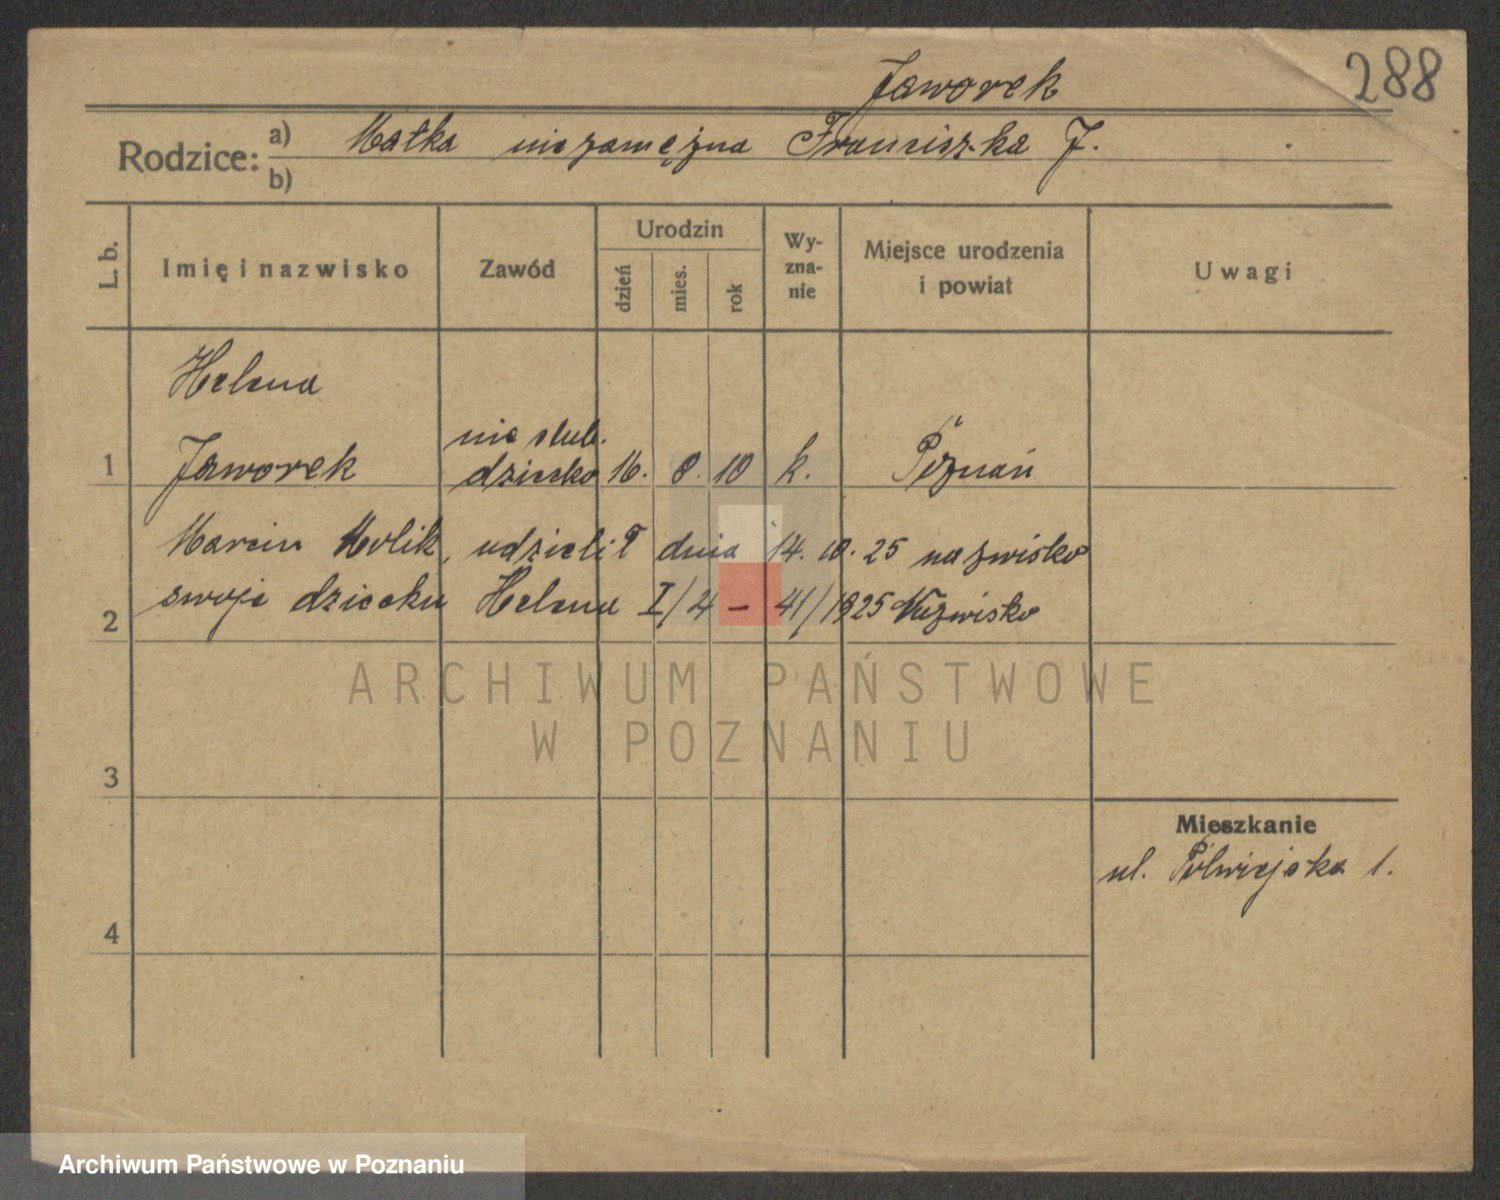 288
Jaworek
Rodzice: a) Matka niezamężna Franciszka J.
b)
L. b. Imię i nazwisko Zawód Urodzin dzień mies. rok Wyznanie Miejsce urodzenia i powiat Uwagi
Helena
nieślub.
1 Jaworek dziecko 16. 8. 10 k. Poznań
Marcin udzielił dnia 14. 10. 25 nazwisko
2 swoje dziecku Helena I/4 – 41/1925 Nazwisko
ARCHIWUM PAŃSTWOWE
W POZNANIU
3
Mieszkanie
ul. Półwiejska 1.
4
Archiwum Państwowe w Poznaniu